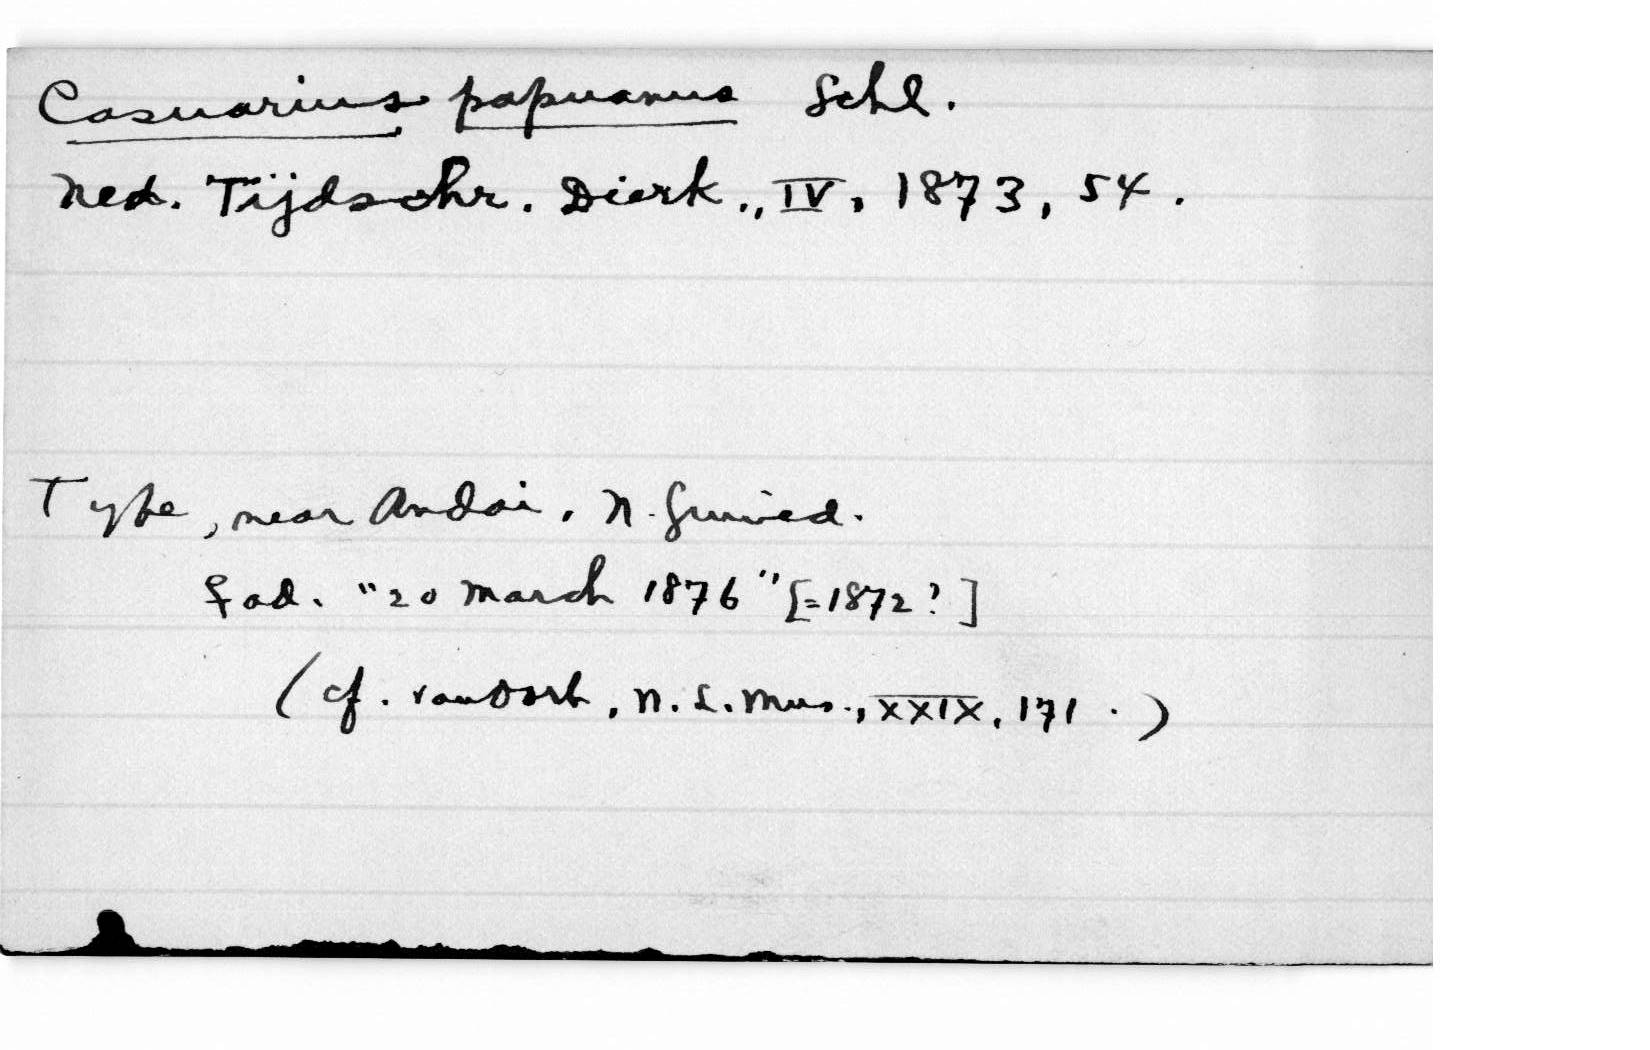 Casuarius papuanus Schl.
Ned. Tijdschr. Dierk., IV, 1873, 54.
Type, near Andai, N. Guinea.
♀ ad. "20 March 1876" [=1872?]
(cf. van Oort, N. L. Mus., XXIX, 171.)